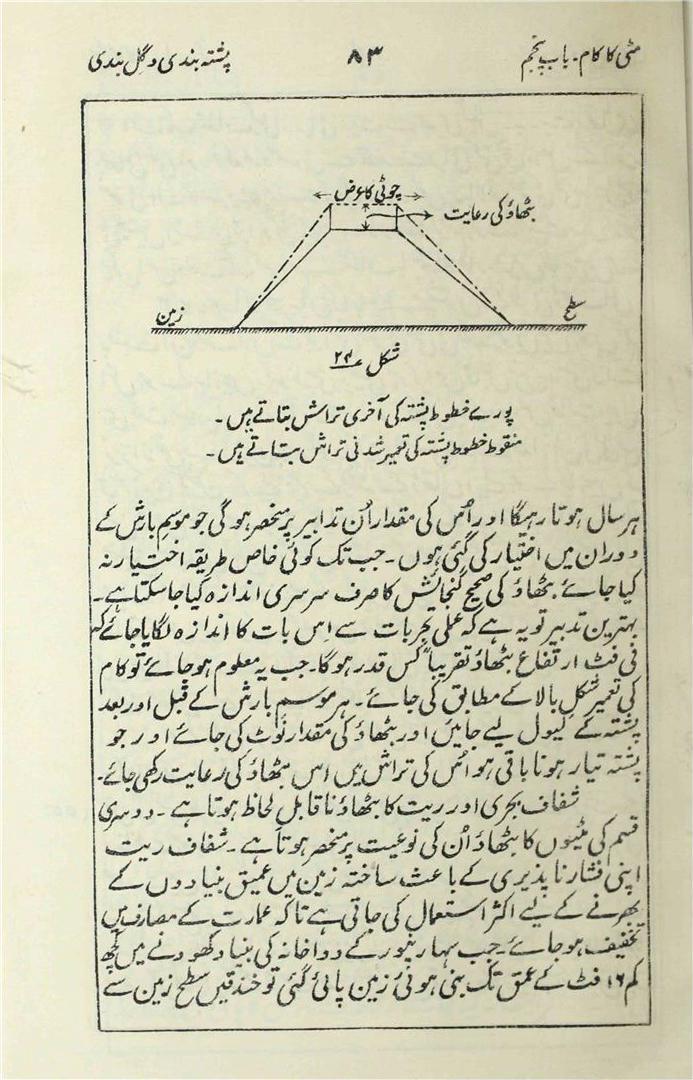 مٹی کا کام۔ باب پنجم ۸۳ پشتہ بندی و گل بندی
چوٹی کا عرض
بٹھاؤ کی رعایت
زمین سطح
شکل ۲۴
پورے خطوط پشتہ کی آخری تراش بتاتے ہیں۔
منقوط خطوط پشتہ کی تعمیر شدنی تراش بتاتے ہیں۔
ہر سال ہوتا رہیگا اور اُس کی مقدار اُن تدابیر پر منحصر ہوگی جو موسمِ بارش کے
دوران میں اختیار کی گئی ہوں۔ جب تک کوئی خاص طریقہ اختیار نہ
کیا جائے بٹھاؤ کی صحیح گنجایش کا صرف سرسری اندازہ کیا جا سکتا ہے۔
بہترین تدبیر تو یہ ہے کہ عملی تجربات سے اِس بات کا اندازہ لگایا جائے کہ
فی فٹ ارتفاع بٹھاؤ تقریباً کس قدر ہوگا۔ جب یہ معلوم ہو جائے تو کام
کی تعمیر شکلِ بالا کے مطابق کی جائے۔ ہر موسمِ بارش کے قبل اور بعد
پشتہ کے لیول لیے جائیں اور بٹھاؤ کی مقدار نوٹ کی جائے اور جو
پشتہ تیار ہونا باقی ہو اُس کی تراش میں اس بٹھاؤ کی رعایت رکھی جائے۔
شفاف بجری اور ریت کا بٹھاؤ ناقابل لحاظ ہوتا ہے۔ دوسری
قسم کی مٹیوں کا بٹھاؤ اُن کی نوعیت پر منحصر ہوتا ہے۔ شفاف ریت
اپنی فشار ناپذیری کے باعث ساختہ زمین میں عمیق بنیادوں کے
بھرنے کے لیے اکثر استعمال کی جاتی ہے تاکہ عمارت کے مصارف میں
تخفیف ہو جائے۔ جب سہارنپور کے دواخانہ کی بنیاد کھودنے میں کچھ
کم ۱۶ فٹ کے عمق تک بنی ہوئی زمین پائی گئی تو خندقیں سطح زمین سے